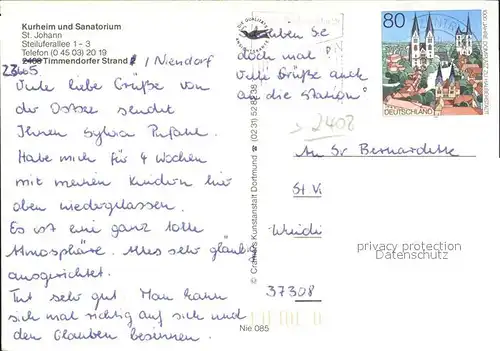 Kurheim und Sanatorium
St. Johann
Steiluferallee 1 - 3
Telefon (0 45 03) 20 19
2408 Timmendorfer Strand /Niendorf
23665
Viele liebe Grüße von
der Ostsee sendet
Ihnen Sylvia
Habe mich für 4 Wochen
mit meinen Kindern hier
oben niedergelassen.
Es ist eine ganz tolle
Atmosphäre. Alles sehr gläubig
ausgerichtet.
Tut sehr gut Man kann
sich mal richtig auf sich und
den Glauben besinnen.
© Crämers Kunstanstalt Dortmund ☎ (02 31) 52 82 38
Nie 085
Geben Sie
doch mal
Viele Grüße auch
an die Station"
80
DEUTSCHLAND
2408
An Sr Bernardette
St V
37308
privacy protection
Datenschutz